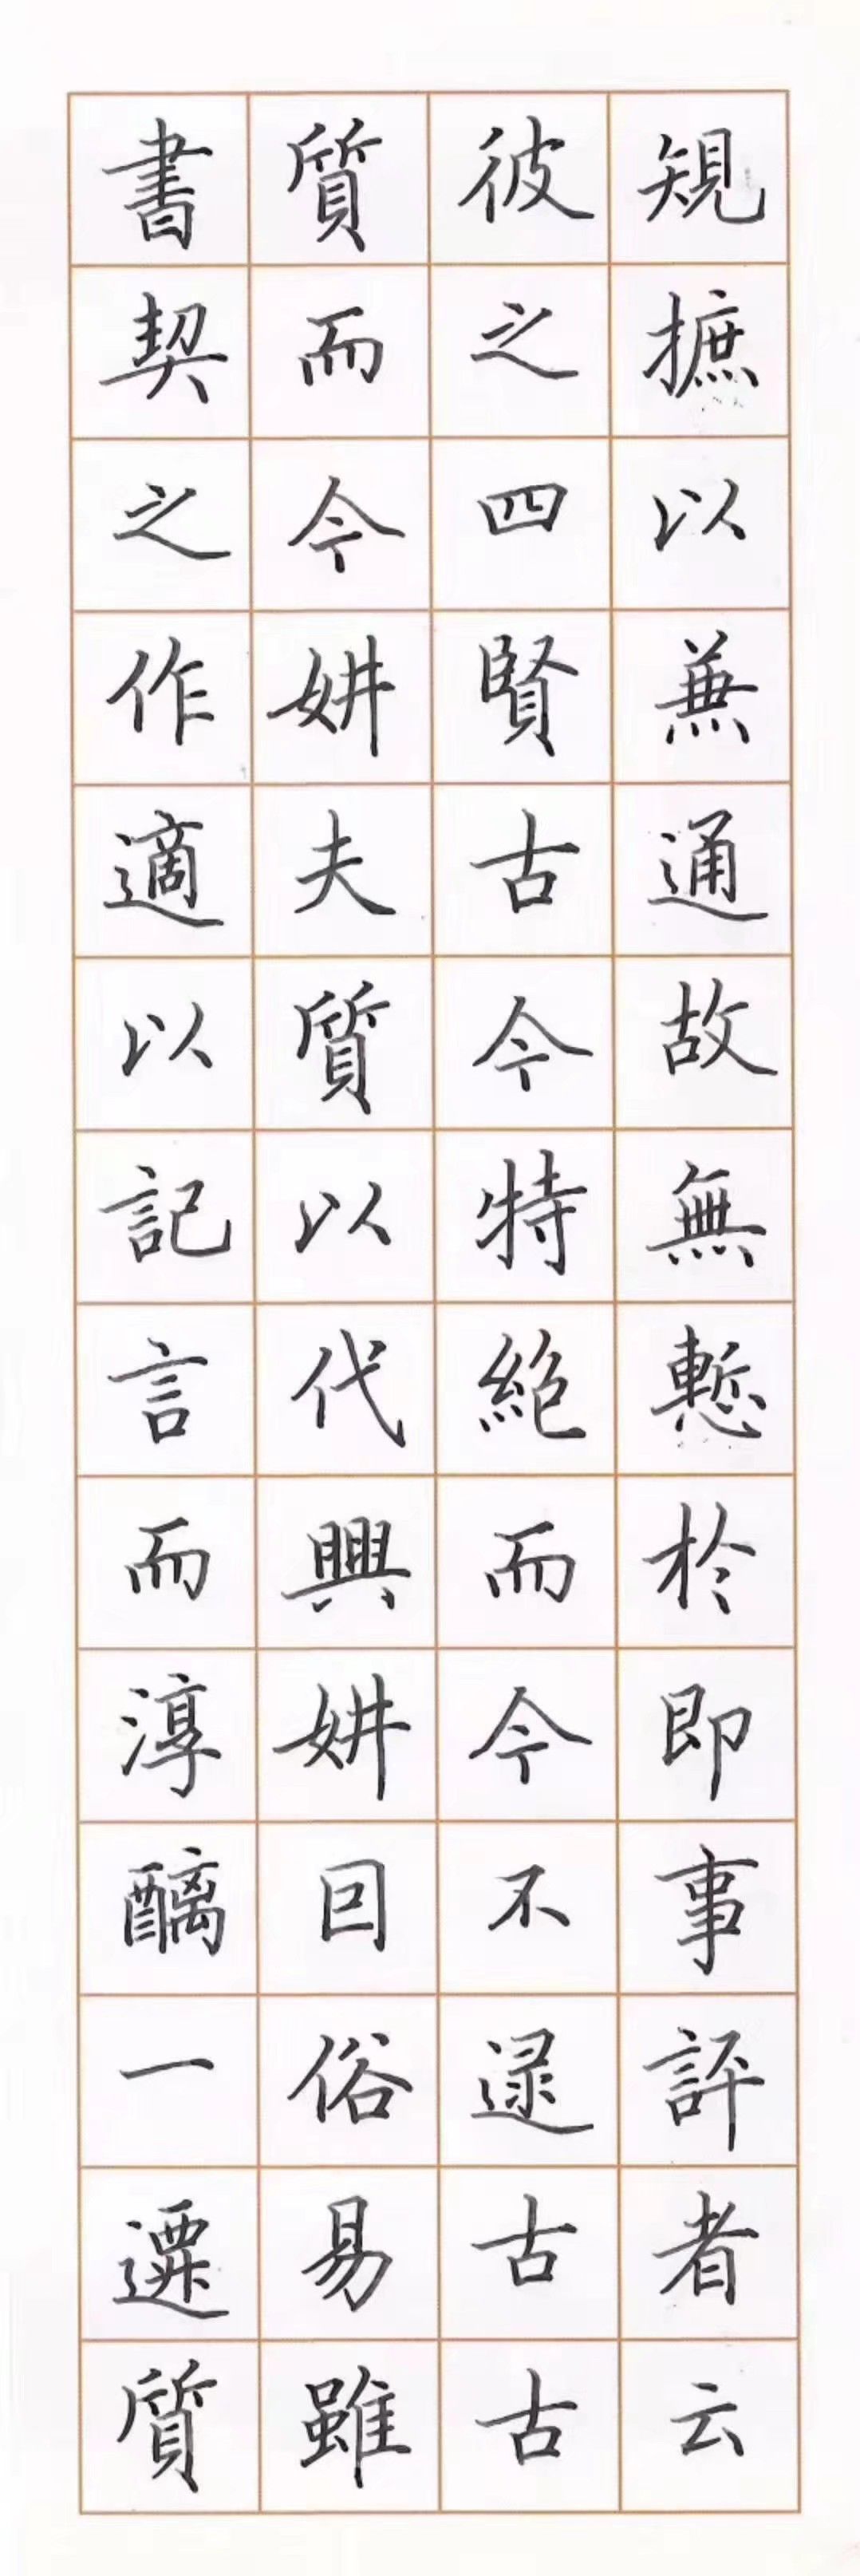 規摭以兼通故無慙於即事評者云
彼之四賢古今特絕而今不逮古古
質而今妍夫質以代興妍因俗易雖
書契之作適以記言而淳醨一遷質